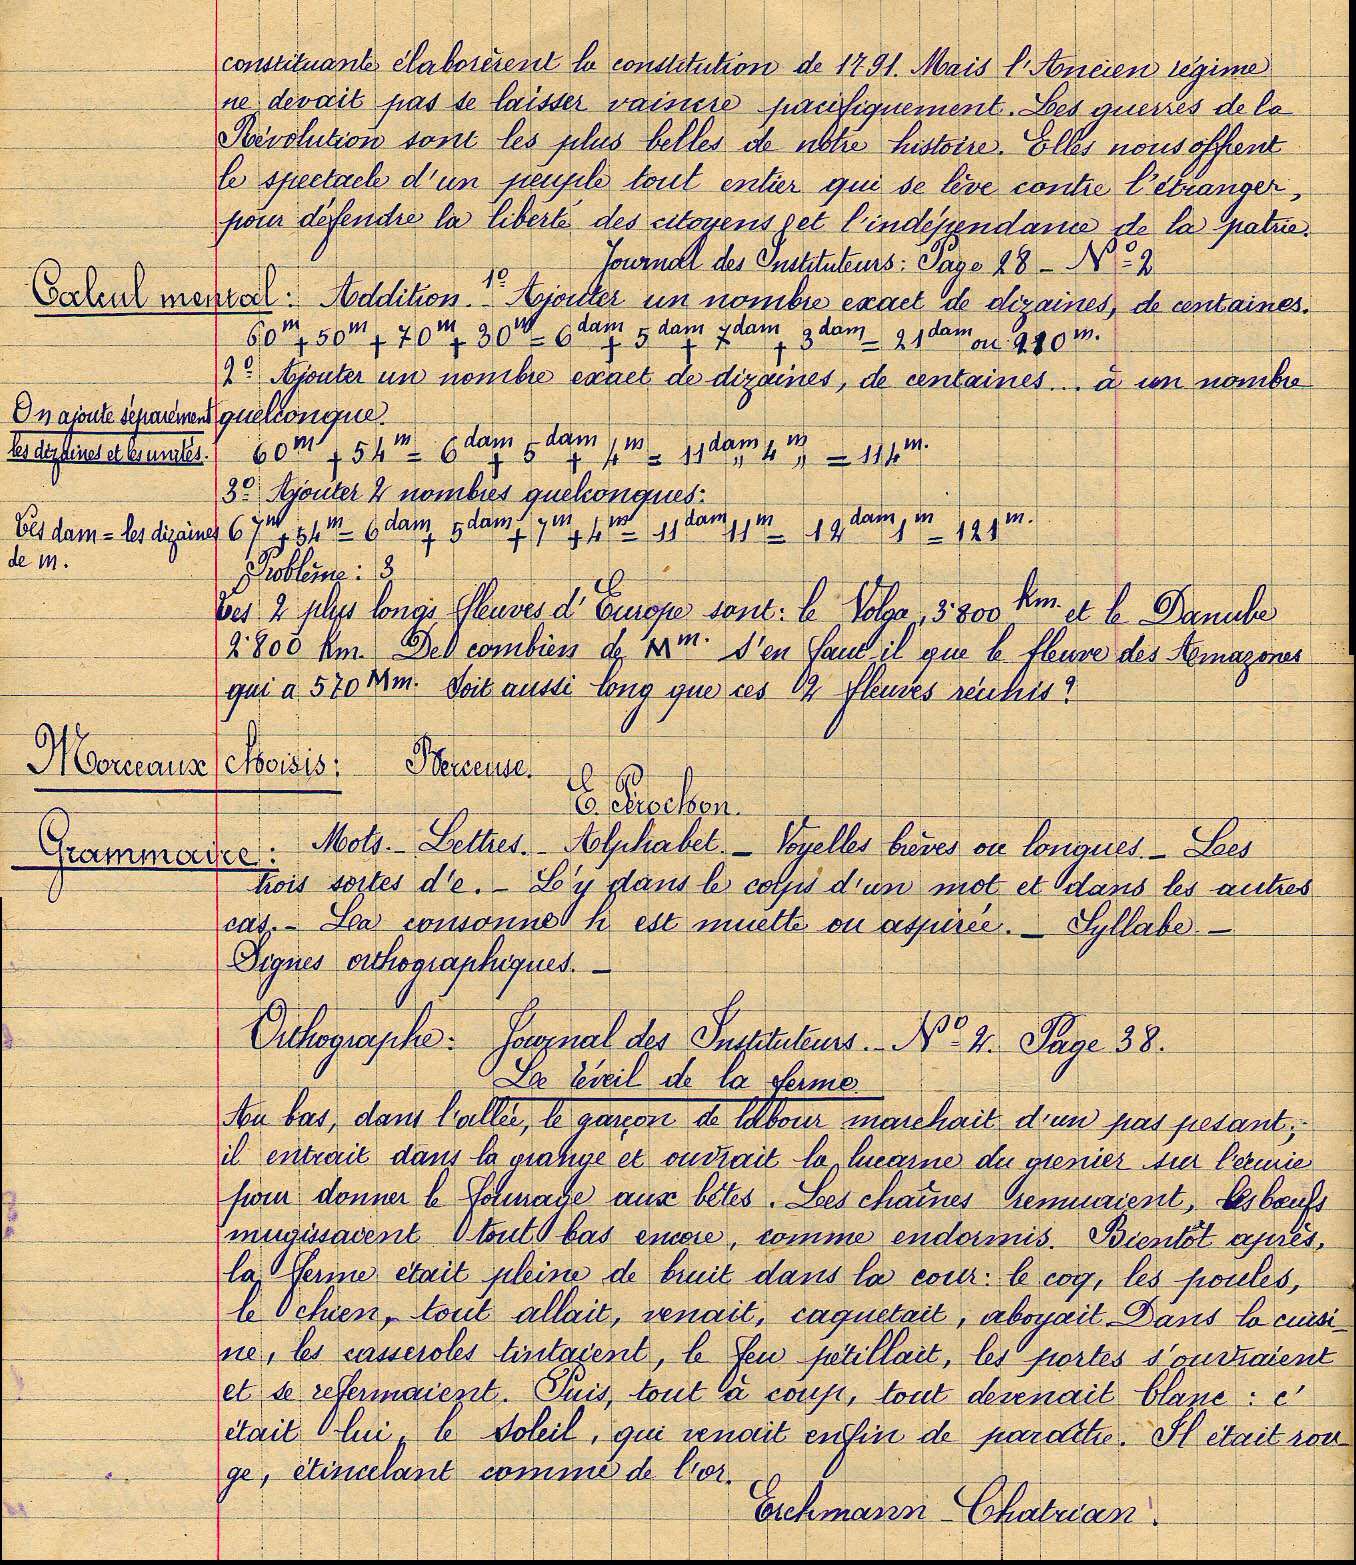 constituante élaborèrent la constitution de 1791. Mais l'Ancien régime
ne devait pas se laisser vaincre pacifiquement. Les guerres de la
Révolution sont les plus belles de notre histoire. Elles nous offrent
le spectacle d'un peuple tout entier qui se lève contre l'étranger,
pour défendre la liberté des citoyens et l'indépendance de la patrie.
Journal des Instituteurs : Page 28 - Nº 2
Calcul mental : Addition. - 1º Ajouter un nombre exact de dizaines, de centaines.
60m + 50m + 70m + 30m = 6dam + 5dam + 7dam + 3dam = 21dam ou 210m.
2º Ajouter un nombre exact de dizaines, de centaines... à un nombre
On ajoute séparément quelconque.
les dizaines et les unités. 60m + 54m = 6dam + 5dam + 4m = 11dam " 4m " = 114m.
3º Ajouter 2 nombres quelconques :
Les dam = les dizaines 67m + 54m = 6dam + 5dam + 7m + 4m = 11dam 11m = 12dam 1m = 121m.
de m.
Problème : 3
Les 2 plus longs fleuves d'Europe sont : le Volga, 3.800 km. et le Danube
2.800 km. De combien de Mm. s'en faut-il que le fleuve des Amazones
qui a 570 Mm. soit aussi long que ces 2 fleuves réunis ?
Morceaux choisis : Berceuse.
E. Pérochon.
Grammaire : Mots. - Lettres. - Alphabet. - Voyelles brèves ou longues. - Les
trois sortes d'e. - L'y dans le corps d'un mot et dans les autres
cas. - La consonne h est muette ou aspirée. - Syllabe. -
Signes orthographiques. -
Orthographe : Journal des Instituteurs. - Nº 2. Page 38.
Le réveil de la ferme.
Au bas, dans l'allée, le garçon de labour marchait d'un pas pesant ;
il entrait dans la grange et ouvrait la lucarne du grenier sur l'écurie
pour donner le fourrage aux bêtes. Les chaînes remuaient, les bœufs
mugissaient tout bas encore, comme endormis. Bientôt après,
la ferme était pleine de bruit dans la cour : le coq, les poules,
le chien, tout allait, venait, caquetait, aboyait. Dans la cuisi-
ne, les casseroles tintaient, le feu pétillait, les portes s'ouvraient
et se refermaient. Puis, tout à coup, tout devenait blanc : c'
était lui, le soleil, qui venait enfin de paraître. Il était rou-
ge, étincelant comme de l'or.
Erckmann - Chatrian.